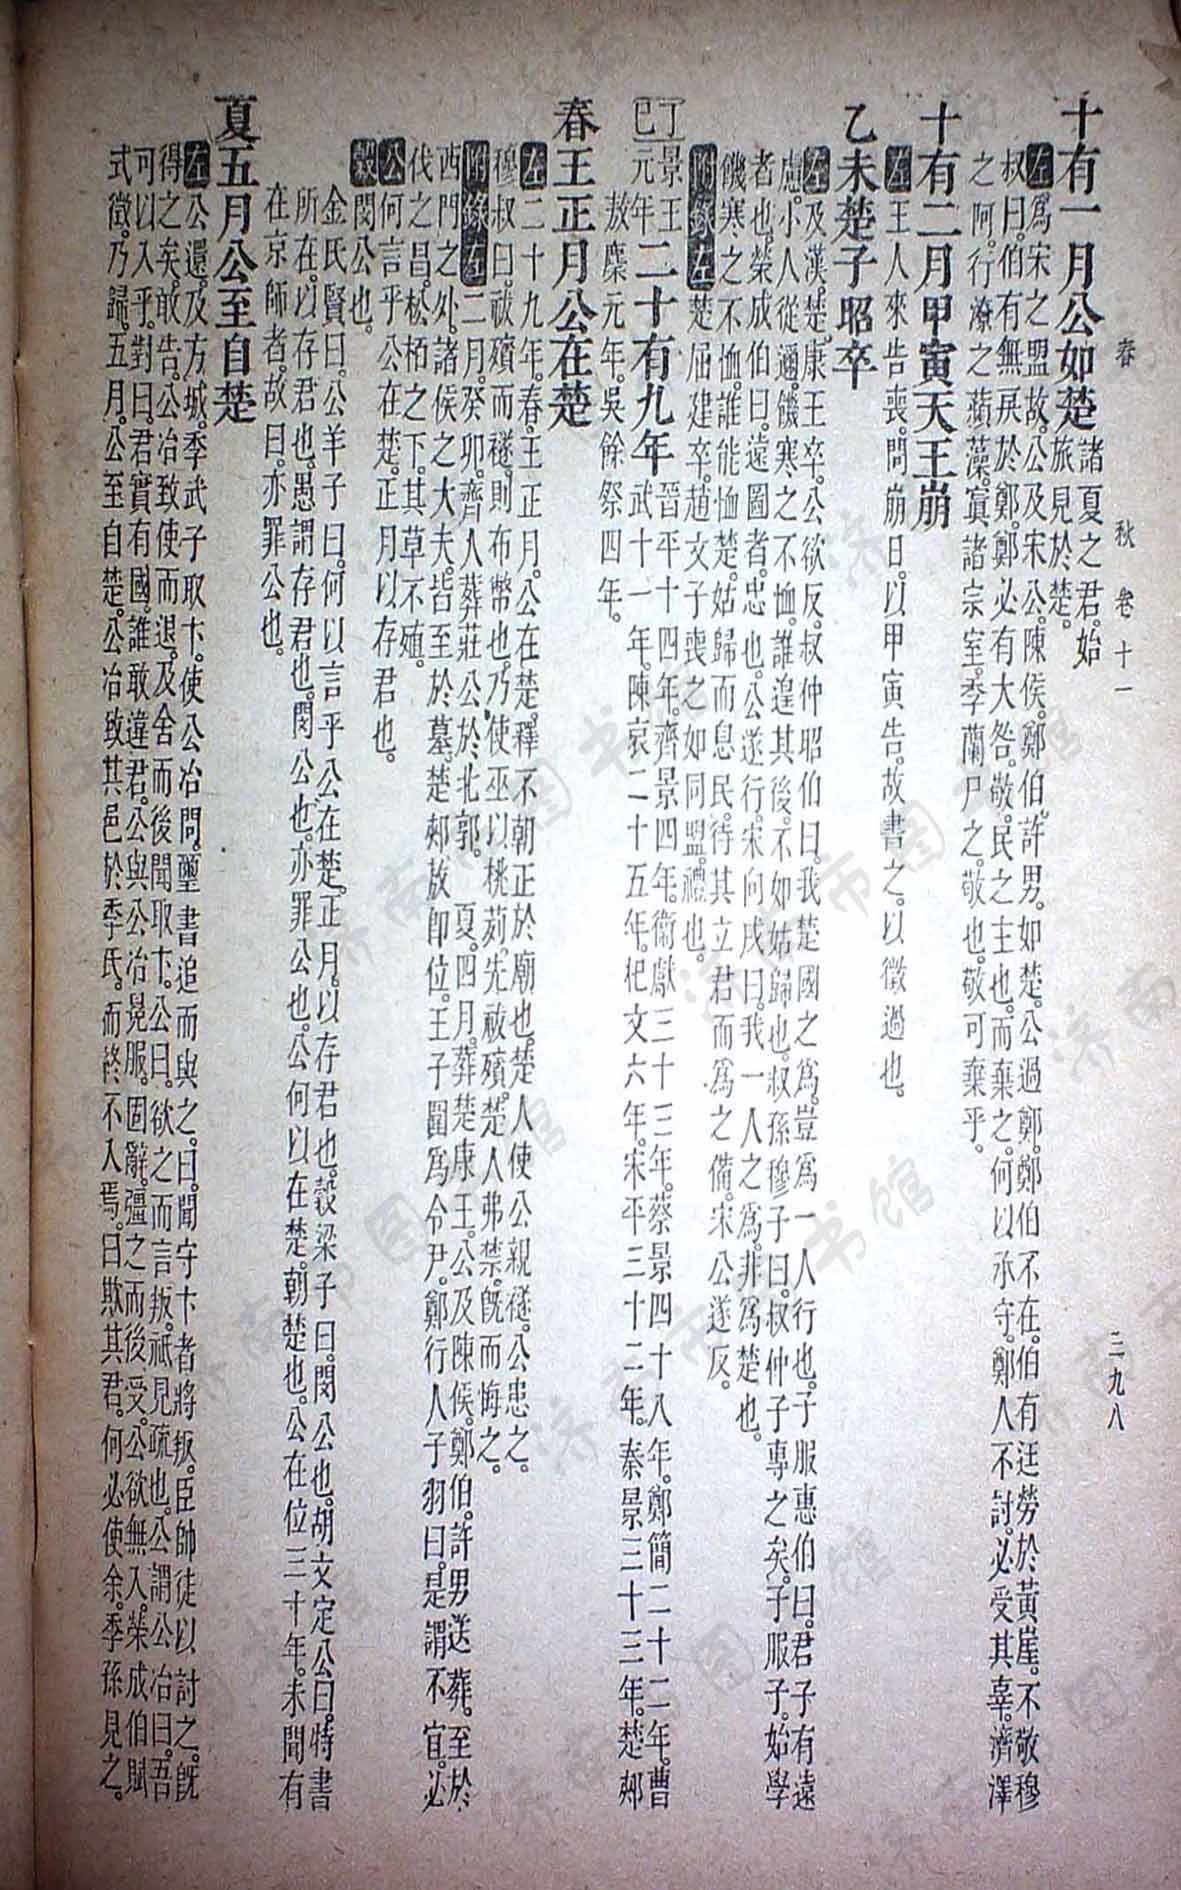 春　秋　卷十一　三九八
十有一月公如楚諸夏之君。始
旅見於楚。
左爲宋之盟故。公及宋公。陳侯。鄭伯。許男。如楚。公過鄭。鄭伯不在。伯有迋勞於黃崖。不敬。穆
叔曰。伯有無戾於鄭。鄭必有大咎。敬。民之主也。而棄之。何以承守。鄭人不討。必受其辜。濟澤
之阿。行潦之蘋藻。寘諸宗室。季蘭尸之。敬也。敬可棄乎。
十有二月甲寅天王崩
左王人來告喪。問崩日。以甲寅告。故書之。以徵過也。
乙未楚子昭卒
左及漢。楚康王卒。公欲反。叔仲昭伯曰。我楚國之爲。豈爲一人行也。子服惠伯曰。君子有遠
慮。小人從邇。饑寒之不恤。誰遑其後。不如姑歸也。叔孫穆子曰。叔仲子專之矣。子服子。始學
者也。榮成伯曰。遠圖者。忠也。公遂行。宋向戌曰。我一人之爲。非爲楚也。
饑寒之不恤。誰能恤楚。姑歸而息民。待其立君而爲之備。宋公遂反。
附錄左楚屈建卒。趙文子喪之如同盟。禮也。
丁巳景王元年二十有九年晉平十四年。齊景四年。衞獻三十三年。蔡景四十八年。鄭簡二十二年。曹
武十一年。陳哀二十五年。杞文六年。宋平三十二年。秦景三十三年。楚郟
敖麇元年。吳餘祭四年。
春王正月公在楚
左二十九年。春。王正月。公在楚。釋不朝正於廟也。楚人使公親襚。公患之。
穆叔曰。祓殯而襚。則布幣也。乃使巫以桃茢。先祓殯。楚人弗禁。旣而悔之。
附錄左二月。癸卯。齊人葬莊公於北郭。夏。四月。葬楚康王。公及陳侯。鄭伯。許男送葬。至於
西門之外。諸侯之大夫。皆至於墓。楚郟敖即位。王子圍爲令尹。鄭行人子羽曰。是謂不宜。必
伐之昌。松柏之下。其草不殖。
公何言乎公在楚。正月以存君也。
穀閔公也。
金氏賢曰。公羊子曰。何以言乎公在楚。正月。以存君也。穀梁子曰。閔公也。胡文定公曰。特書
所在。以存君也。愚謂存君也。閔公也。亦罪公也。公何以在楚。朝楚也。公在位三十年。未聞有
在京師者。故曰。亦罪公也。
夏五月公至自楚
左公還。及方城。季武子取卞。使公冶問。璽書追而與之。曰。聞守卞者將叛。臣帥徒以討之。旣
得之矣。敢告。公冶致使而退。及舍而後聞取卞。公曰。欲之而言叛。祇見疏也。公謂公冶曰。吾
可以入乎。對曰。君實有國。誰敢違君。公與公冶冕服。固辭。彊之而後受。公欲無入。榮成伯賦
式微。乃歸。五月。公至自楚。公冶致其邑於季氏。而終不入焉。曰。欺其君。何必使余。季孫見之。